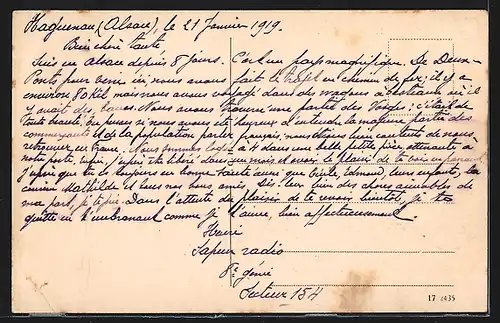 Haguenau (Alsace), le 21 Janvier 1919.
Bien chère tante,
Suis en Alsace depuis 8 jours. C'est un pays magnifique. De Deux-
Ponts, pour venir ici, nous avons fait le trajet en chemin de fer; il y a
environ 80 Kil mais nous avons voyagé dans des wagons à bestiaux où il
y avait des bancs. Nous avons traversé une partie des Vosges: c'était de
toute beauté, et puis si nous avons été heureux d'entendre la majeure partie des
commerçants et de la population parler français, nous étions bien contents de nous
retrouver en France. Nous sommes logés à 4 dans une belle petite pièce, attenante à
notre poste. Enfin, j'espère être libéré dans un mois et avoir le plaisir de te voir en passant.
J'espère que tu es toujours en bonne santé ainsi que Cécile, Edmond, leurs enfants, la
cousine Mathilde et tous nos bons amis. Dis-leur bien des choses aimables de
ma part, je te prie. Dans l'attente du plaisir de te revoir bientôt, je te
quitte en t'embrassant comme je t'aime, bien affectueusement.
Henri
Sapeur radio
8e génie
Secteur 154
17 2435